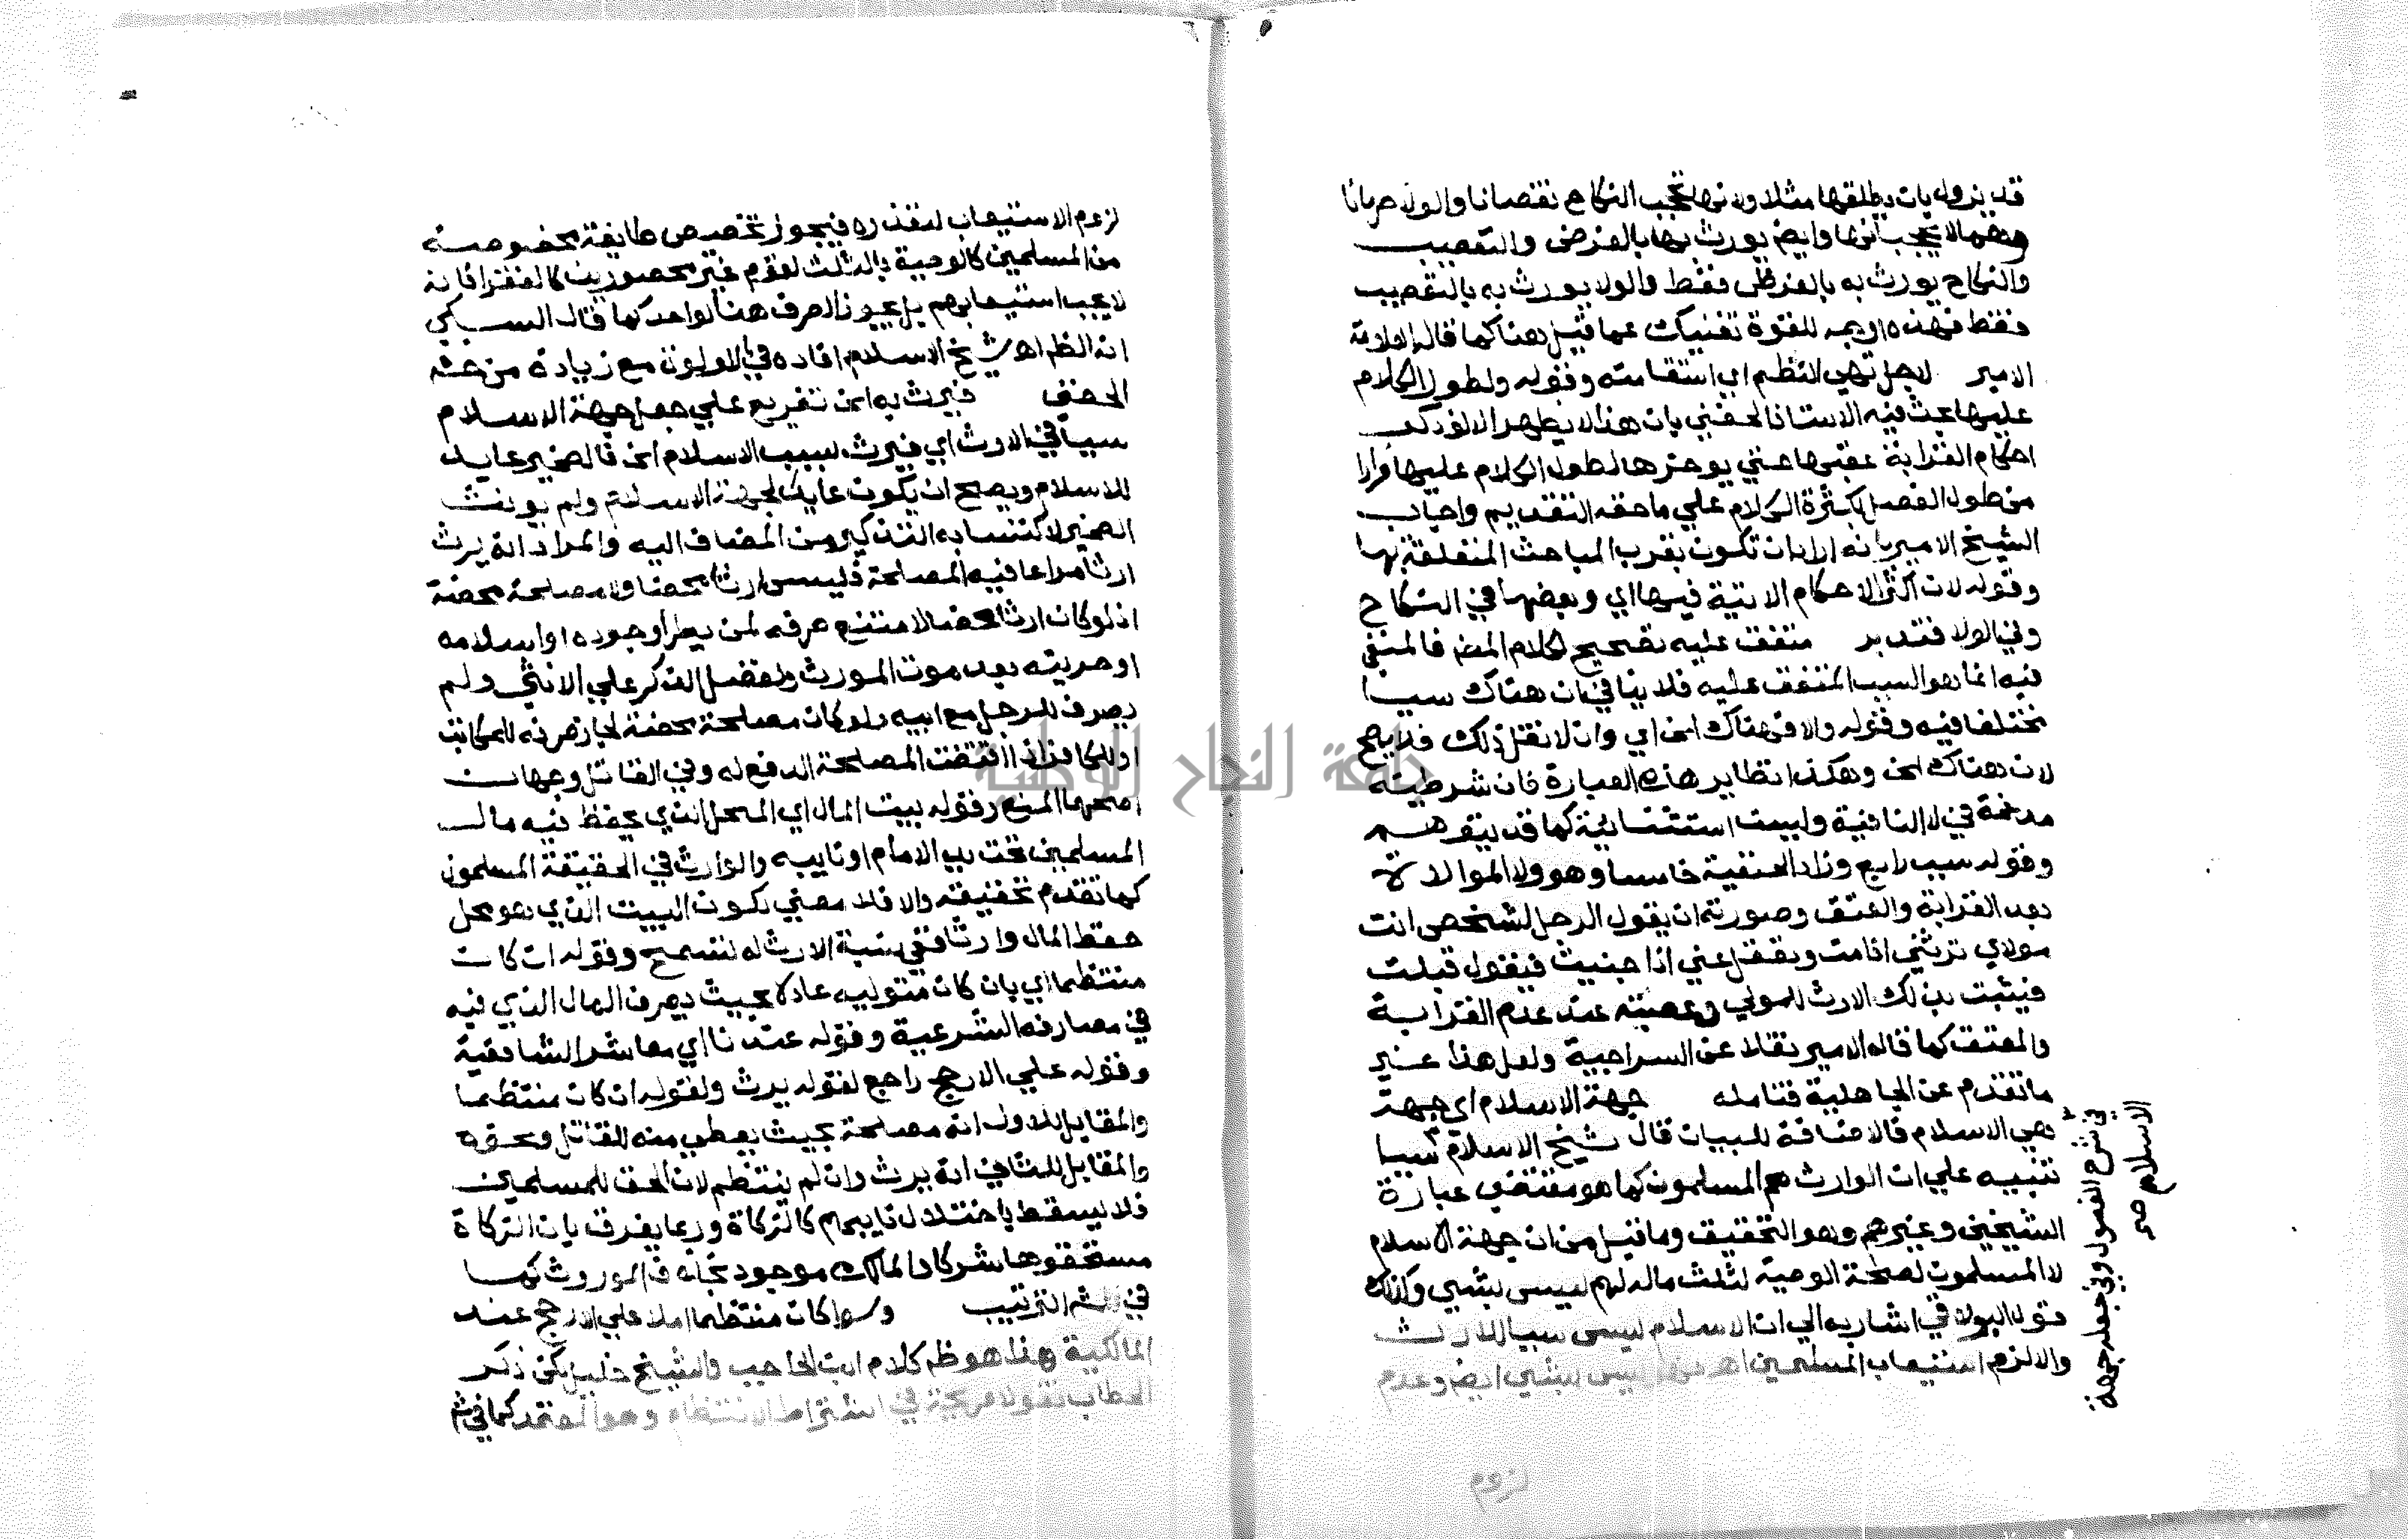 قد يزول بان يطلقها مثلا ولانها تحجب النكاح نقصانا والولا حرمانا
وهما لا يحجبانها وايضا يورث بها بالفرض والتعصيب
والنكاح يورث به بالفرض فقط والولا يورث به بالتعصيب
فقط فهذه اوجه للقوة تغنيك عما قيل هنا كما قاله العلامة
الامير لاجل تهي النظم اي استقامته وقوله ولطول الكلام
عليها بحث فيه الاستاذ الحفني بان هذا لا يظهر الا لو ذكر
احكام القرابة عقبها حتي يوخرها لطول الكلام عليها فرارا
من طول الفصل لكثرة الكلام علي ما حقه التقديم واجاب
الشيخ الامير بانه اراد ان تكون بقرب المباحث المتعلقة بها
وقوله لان اكثر الاحكام الاتية فيها اي وبعضها في النكاح
وفي الولا فتدبر متفق عليه تصحيح لكلام المص فالمنفي
فيه انما هو السبب المتفق عليه فلا ينافي ان هناك سببا
مختلفا فيه وقوله والا فهناك الخ اي وان لا نقل ذلك فلا يصح
لان هناك الخ وهكذا نظاير هذه العبارة فان شرطية
مدغمة في لا النافية وليست استثنائية كما قد يتوهم
وقوله سبب رابع وزاد الحنفية خامسا وهو ولا الموالاة
بعد القرابة والعتق وصورته ان يقول الرجل لشخص انت
مولاي ترثني اذا مت وتعقل عني اذا جنيت فيقول قبلت
فيثبت بذلك الارث للمولي وعصبته عند عدم القرابة
والمعتق كما قاله الامير نقلا عن السراجية ولعل هذا غير
ما تقدم عن الجاهلية فتامله جهة الاسلام اي جهة
هي الاسلام فالاضافة للبيان قال شيخ الاسلام سببا
تنبيه علي ان الوارث هم المسلمون كما هو مقتضي عبارة
الشيخين وغيرهم وهو التحقيق وما قيل من ان جهة الاسلام
لا المسلمون لصحة الوصية لثلث ماله لهم ليس بشي وكذلك
قوله البولاقي اشار به الي ان الاسلام ليس سببا للارث
والا لزم استيعاب المسلمين اهـ ليس بشي ايضا وعدم
في شرح الفصول وفي جعله جهة
الاسلام صح
لزوم
لزوم الاستيعاب لتعذره فيجوز تخصيص طايفة مخصوصة
من المسلمين كالوصية بالثلث لقوم غير محصورين كالفقرا فانه
لا يجب استيعابهم بل يجوز الصرف هنا لواحد كما قال السبكي
انه الظاهر اهـ شيخ الاسلام افاده في اللولوة مع زيادة من حشه
الحفني فيرث به الخ تفريع علي جعل جهة الاسلام
سببا في الارث اي فيرث بسبب الاسلام الخ فالضمير عايد
للاسلام ويصح ان يكون عايدا لجهة الاسلام ولم يونث
الضمير لاكتسابه التذكير من المضاف اليه والمراد انه يرث
ارثا مراعا فيه المصلحة فليس ارثا محضا ولا مصلحة محضة
اذ لو كان ارثا محضا لامتنع صرفه لمن يطرا وجوده او اسلامه
او حريته بعد موت المورث ولفضل الذكر علي الانثي ولم
يصرف للرجل مع ابيه ولو كان مصلحة محضة لجاز صرفه للمكاتب
او للكافر اذا اقتضت المصلحة الدفع له وفي القاتل وجهان
اصحهما المنع وقوله بيت المال اي المحل الذي يحفظ فيه مال
المسلمين تحت يد الامام او نايبه والوارث في الحقيقة المسلمون
كما تقدم تحقيقه والا فلا معني لكون البيت الذي هو محل
حفظ المال وارثا ففي نسبة الارث له تسمح وقوله ان كان
منتظما اي بان كان متوليه عادلا بحيث يصرف المال الذي فيه
في مصارفه الشرعية وقوله عندنا اي معاشر الشافعية
وقوله علي الارجح راجع لقوله يرث ولقوله ان كان منتظما
والمقابل للاول انه مصلحة بحيث يعطي منه للقاتل ونحوه
والمقابل للثاني انه يرث وان لم ينتظم لان الحق للمسلمين
فلا يسقط باختلال نايبهم كالزكاة وربما يفرق بان الزكاة
مستحقوها شركا والمالك موجود بخلاف الموروث كما
في شم الترتيب وسوا كان منتظما ام لا علي الارجح عند
المالكية هذا هو ظم كلام ابن الحاجب والشيخ خليل لكن ذكر
الحطاب نقولا صريحة في اشتراط الانتظام وهو المعتمد كما في شم